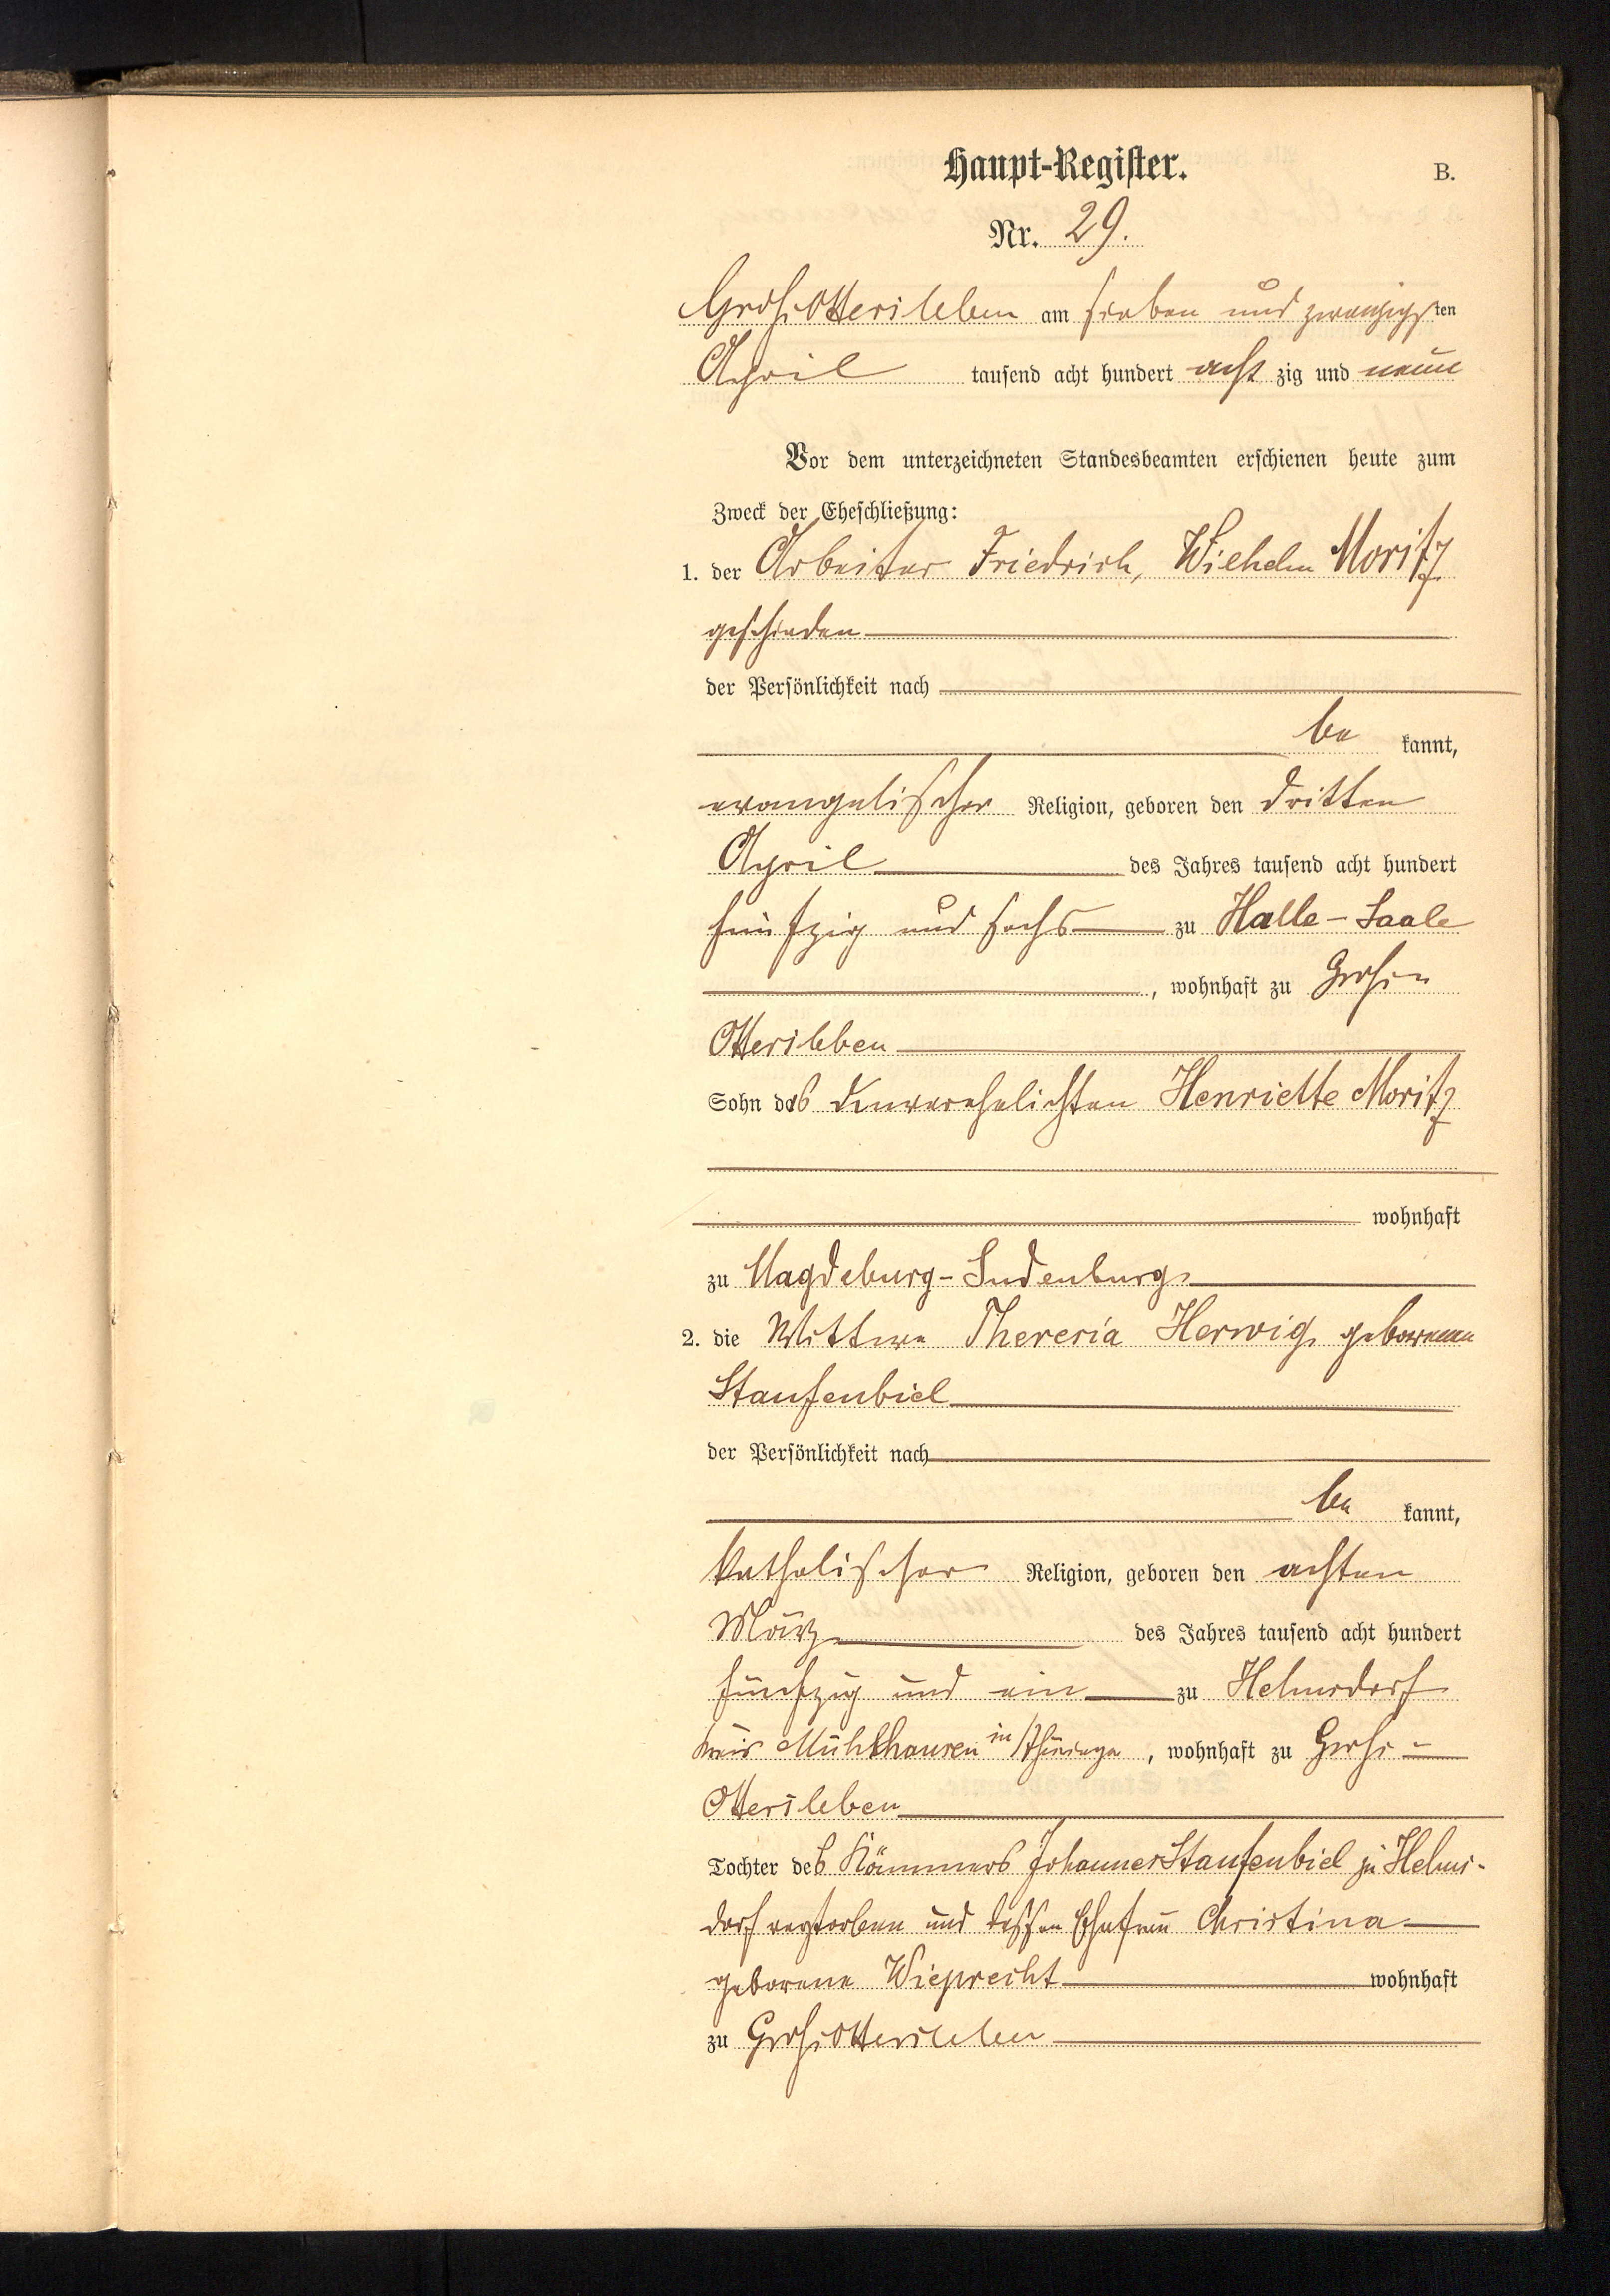 Haupt-Register.
B.
Nr. 29.
Groß Ottersleben am sieben und zwanzigsten
April tausend acht hundert acht zig und neun
Vor dem unterzeichneten Standesbeamten erschienen heute zum
Zweck der Eheschließung:
1. der Arbeiter Friedrich, Wilhelm Moritz
geschieden
der Persönlichkeit nach
be kannt,
evangelischer Religion, geboren den dritten
April des Jahres tausend acht hundert
fünfzig und sechs zu Halle-Saale
, wohnhaft zu Groß-
Ottersleben
Sohn der unverehelichten Henriette Moritz
wohnhaft
zu Magdeburg-Sudenburg
2. die Wittwe Theresia Herwig, geborene
Staufenbiel
der Persönlichkeit nach
be kannt,
katholischer Religion, geboren den achten
März des Jahres tausend acht hundert
fünfzig und ein zu Helmsdorf
Kreis Mühlhausen in Thüringen, wohnhaft zu Groß-
Ottersleben
Tochter des Kämmers Johannes Staufenbiel zu Helms-
dorf verstorben und dessen Ehefrau Christina
geborene Wieprecht wohnhaft
zu Groß Ottersleben